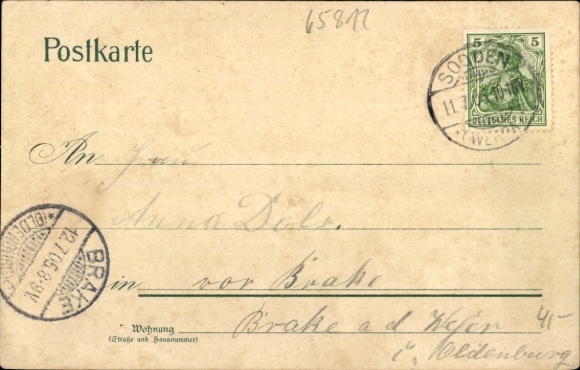 65812
Postkarte
5 5
DEUTSCHES REICH
SOODEN
11.7.05 10-11V
(WERRA)
An Frau
Anna Dols.
in vor Brake
BRAKE
12.7.05.8-9V.
*(OLDENBURG)
Wohnung
(Straße und Hausnummer)
Brake a d Weser
41-
i. Oldenburg